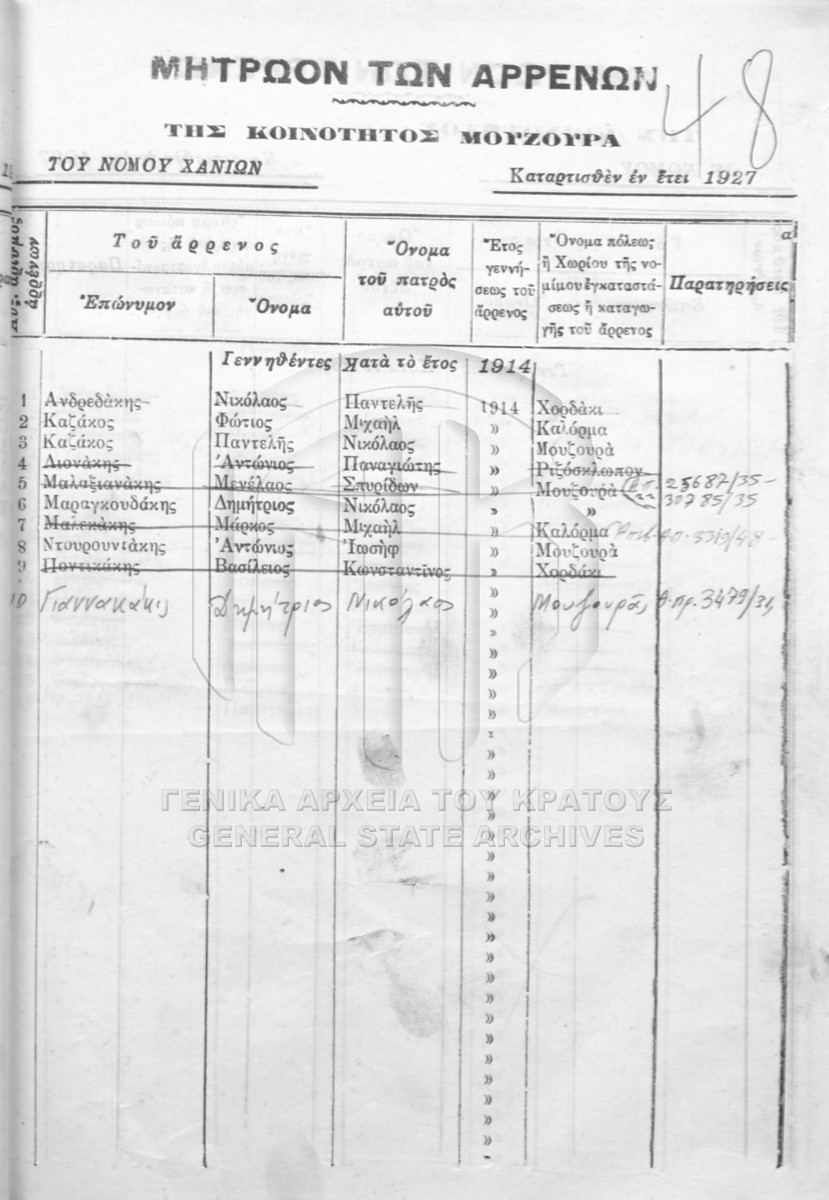 ΜΗΤΡΩΟΝ ΤΩΝ ΑΡΡΕΝΩΝ
48
ΤΗΣ ΚΟΙΝΟΤΗΤΟΣ ΜΟΥΖΟΥΡΑ
ΤΟΥ ΝΟΜΟΥ ΧΑΝΙΩΝ Καταρτισθὲν ἐν ἔτει 1927
Αὔξ. ἀριθμὸς ἀρρένων
Τοῦ ἄρρενος
Ἐπώνυμον Ὄνομα
Ὄνομα
τοῦ πατρὸς
αὐτοῦ
Ἔτος
γεννή-
σεως τοῦ
ἄρρενος
Ὄνομα πόλεως
ἢ Χωρίου τῆς νο-
μίμου ἐγκαταστά-
σεως ἢ καταγω-
γῆς τοῦ ἄρρενος
Παρατηρήσεις
Γεννηθέντες κατὰ τὸ ἔτος 1914
1 Ἀνδρεδάκης Νικόλαος Παντελῆς 1914 Χορδάκι
2 Καζάκος Φώτιος Μιχαὴλ » Καλόρμα
3 Καζάκος Παντελῆς Νικόλαος » Μουζουρὰ
4 Διονάκης Ἀντώνιος Παναγιώτης » Ριζόσκλωπον
5 Μαλαξιανάκης Μενέλαος Σπυρίδων » Μουζουρὰ 25687/35
30785/35
6 Μαραγκουδάκης Δημήτριος Νικόλαος » »
7 Μαλεκάκης Μάρκος Μιχαὴλ » Καλόρμα
8 Ντουρουντάκης Ἀντώνιος Ἰωσὴφ » Μουζουρὰ
9 Ποντικάκης Βασίλειος Κωνσταντῖνος » Χορδάκι
10 Γιαννακάκις Δημήτριος Νικόλαος » Μουζουρᾶς θ.πρ. 3479/34
ΓΕΝΙΚΑ ΑΡΧΕΙΑ ΤΟΥ ΚΡΑΤΟΥΣ
GENERAL STATE ARCHIVES